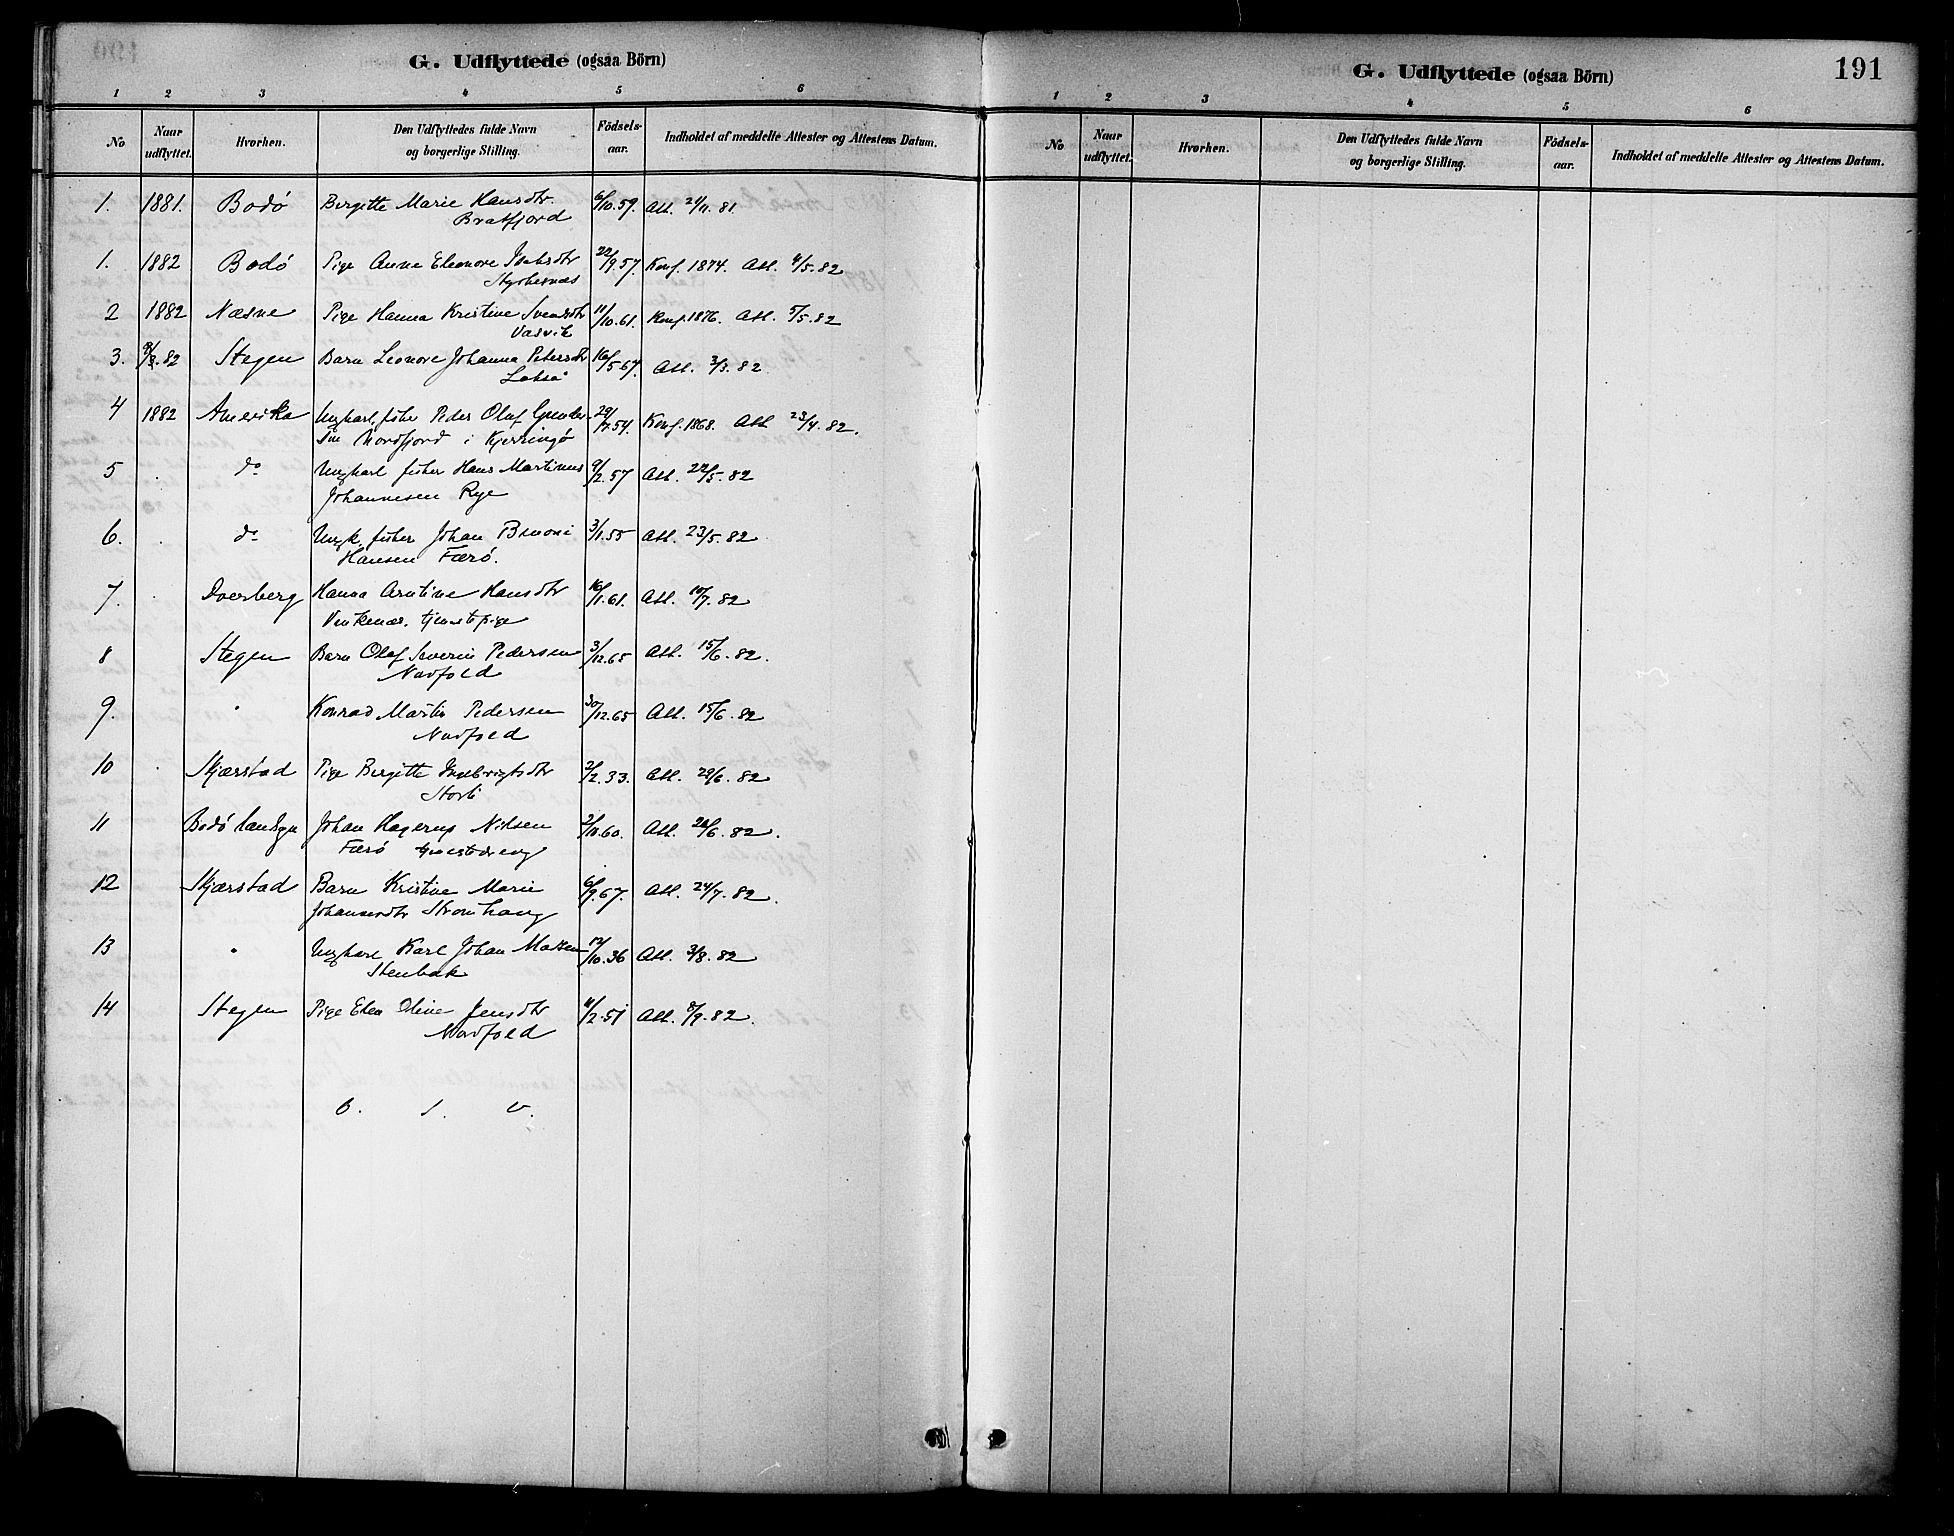 G. Udflyttede (ogsaa Börn)
1 2 3 4 5 6
No
Naar udflyttet.
Hvorhen.
Den Udflyttedes fulde Navn og borgerlige Stilling.
Födsels-aar.
Indholdet af meddelte Attester og Attestens Datum.
1. 1881. Bodö Bergitte Marie Hansdtr. 6/10.59. Att. 21/11.81.
Bratfjord
1. 1882 Bodö Pige Anna Eleonore 22/9.57. Konf. 1874. Att. 4/5.82
Styrkesnæs
2 1882 Næsne Pige Hanna Kristine Svensdtr 11/10.61. Konf. 1876. Att. 5/5.82
Vasvik
3. 82 Stegen Barn Leonore Johanna Petersdtr 16/5.67. Att. 3/3.82
Laksaa
4 1882 Amerika Ungkarl, fisker Peder Olaf Gunder- 29/7.54. Konf. 1868. Att 23/4.82.
sen Nordfjord i Kjerringö
5 . do Ungkarl fisker Hans Martinus 9/2.57 Att. 22/5.82
Johannesen Rye
6. . do Ungk. fisker Johan Benoni 3/1.55 Att. 23/5.82
Hansen Færö.
7. . Dverberg Hanna Arntine Hansdtr 16/1.61. Att. 10/7.82
Vinkenæs. tjenestepige
8 Stegen Barn Olaf Severin Pedersen 3/12.65 Att. 15/6.82.
Nordfold
9. " Konrad Martin Pedersen 30/12.65 Att. 15/6.82
Nordfold
10 . Skjærstad Pige Bergitte Ingebrigtsdtr 2/2.33. Att. 29/6.82
Storli
11 Bodö landsgn Johan Hagerup Nilsen 2/10.60. Att. 26/6.82.
Færö tjenestedreng
12 Skjærstad Barn Kristine Marie 6/9.67. Att. 24/7.82.
Johannesdtr Strømhaug
13 " Ungkarl Karl Johan Madsen 12/10.36 Att. 3/8.82
Stenbak
14 Stegen Pige Elen Oline Jensdtr 11/2.51 Att. 8/9.82.
Nordfold
O. S. V.
G. Udflyttede (ogsaa Börn)
191
1 2 3 4 5 6
No
Naar udflyttet.
Hvorhen.
Den Udflyttedes fulde Navn og borgerlige Stilling.
Födsels-aar.
Indholdet af meddelte Attester og Attestens Datum.